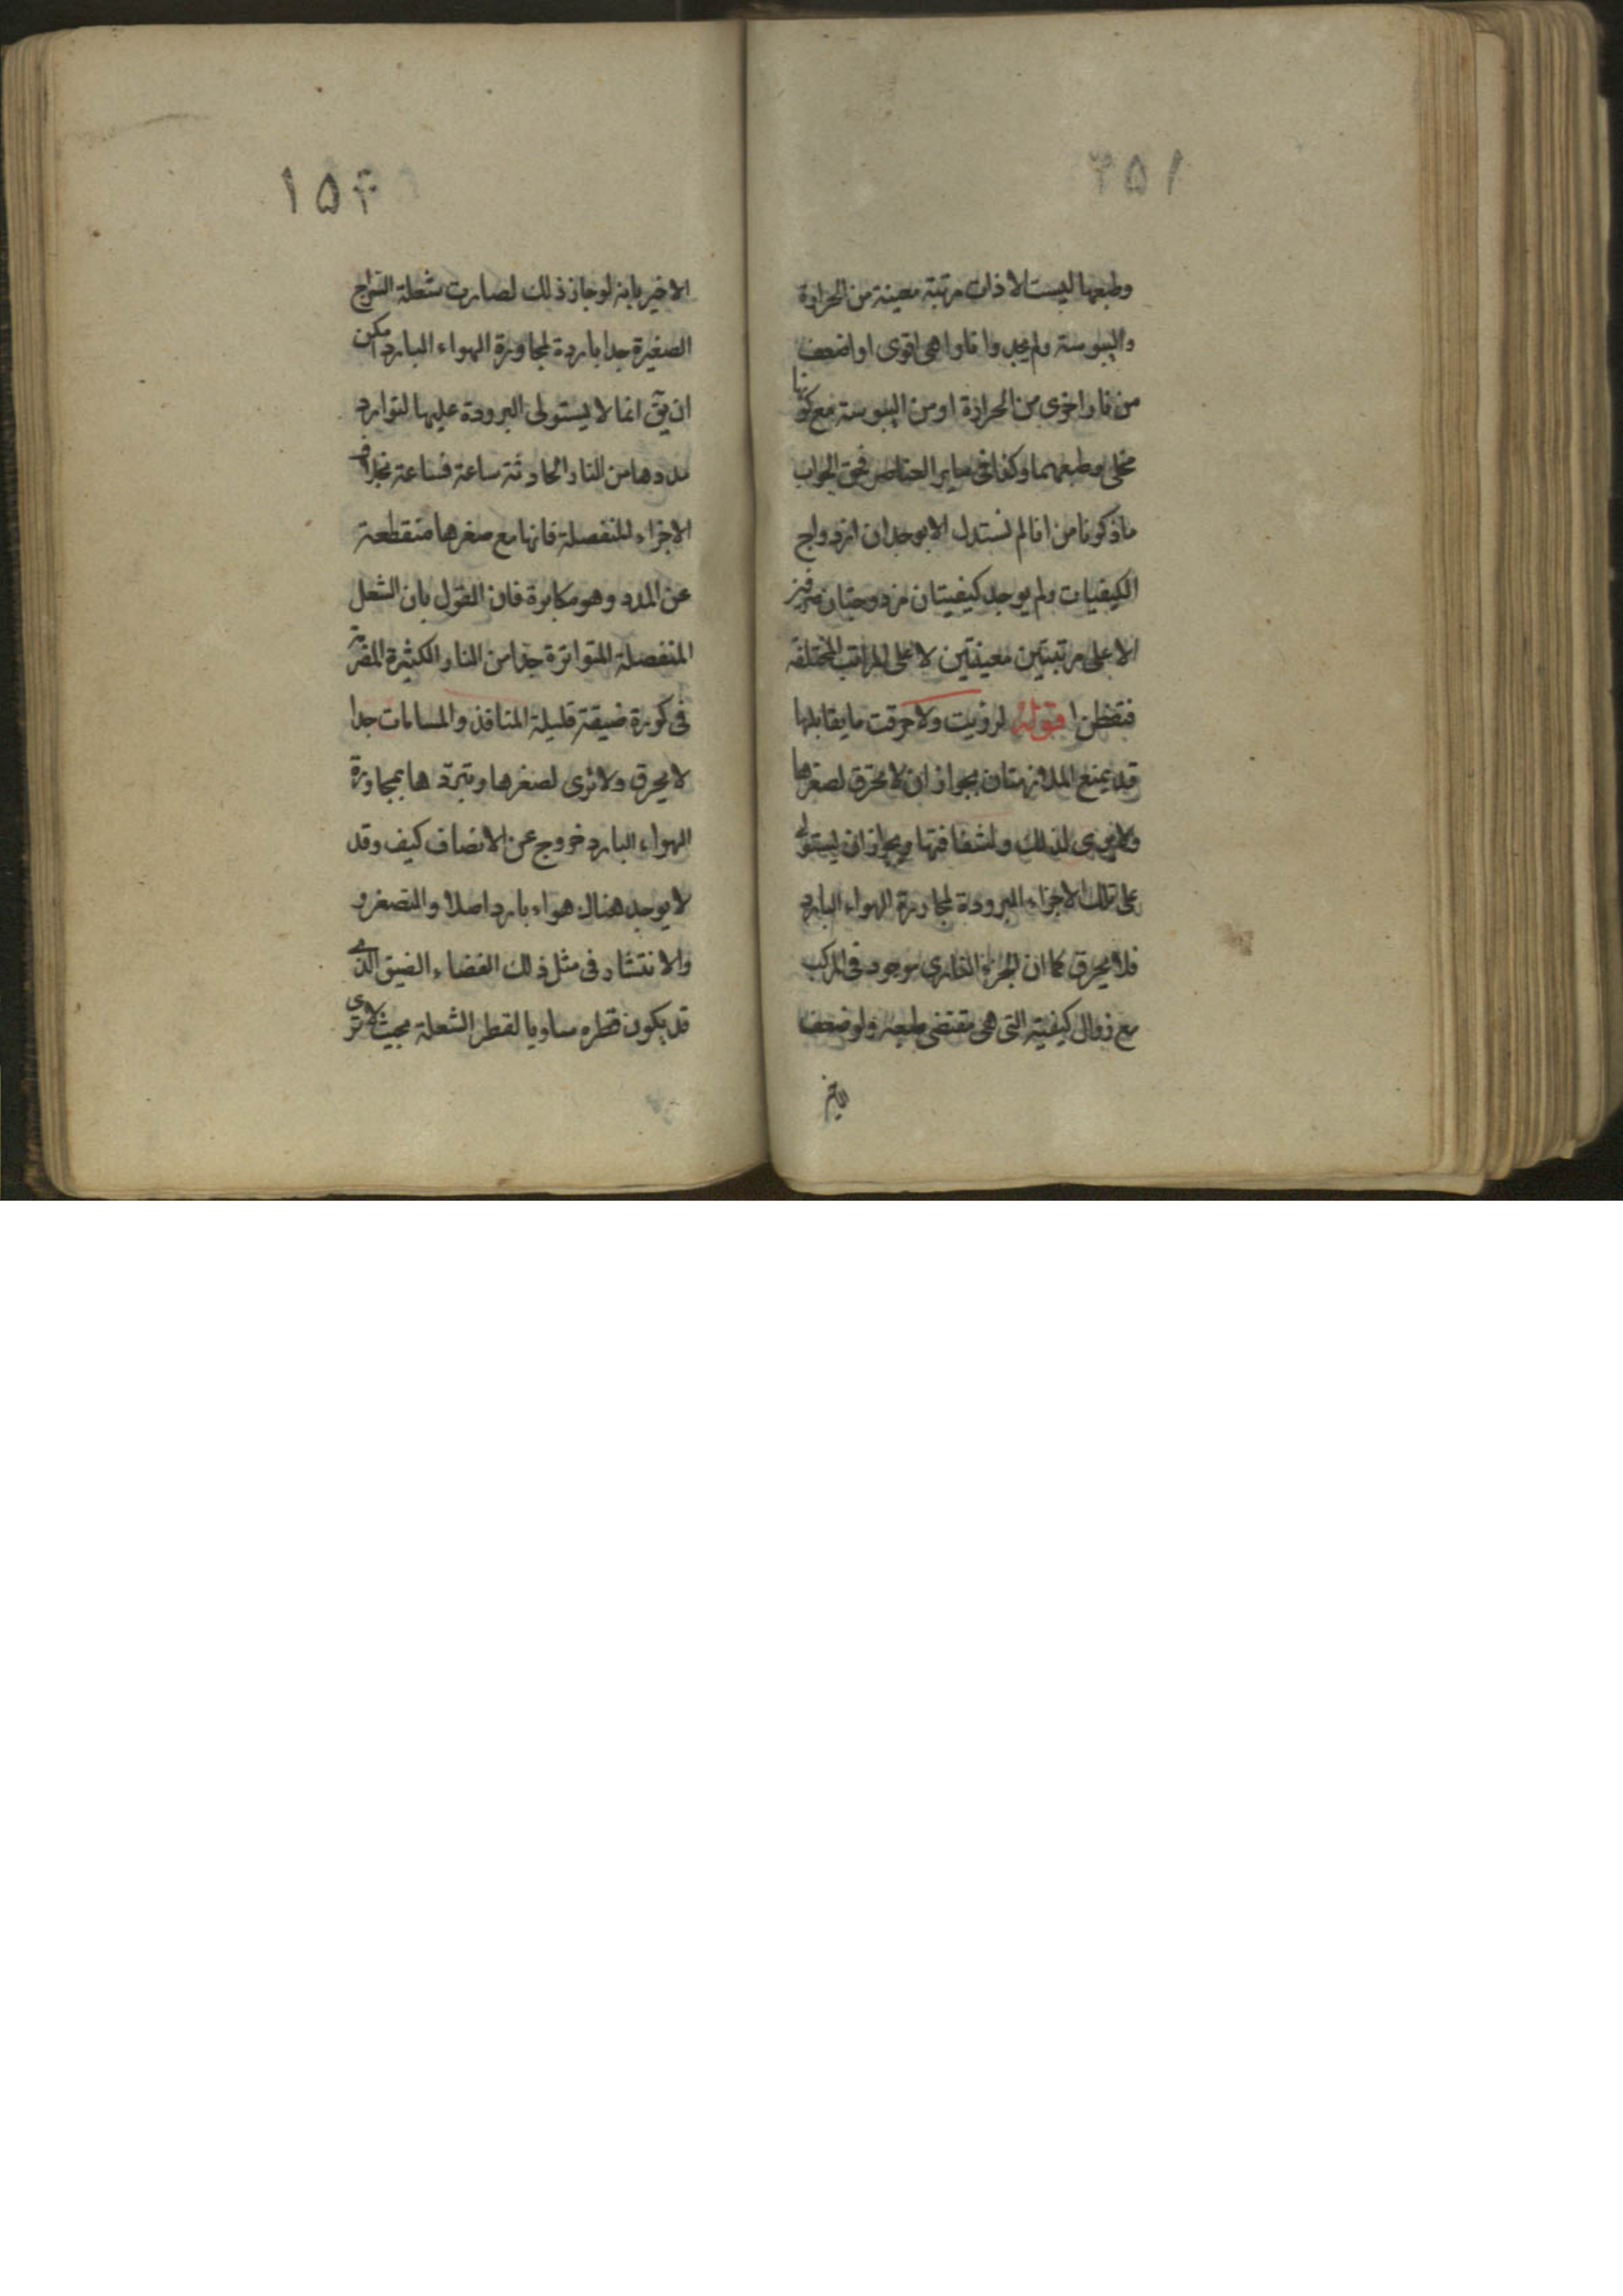 وطبعها ليست الا ذات مرتبة معينة من الحرارة
واليبوسة ولم يجدوا نارا هى اقوى او اضعف
من نار اخرى من الحرارة او من اليبوسة مع كونها
مخلى وطبعها وكذا فى ساير العناصر فحق الجواب
ما ذكرنا من انا لم نستدل الا بوجدان ازدواج
الكيفيات ولم يوجد كيفيتان مزدوجتان
الا على مرتبتين معينتين لا على المراتب المختلفة
فتفطن قوله لرؤيت ولاحرقت ما يقابلها
قد يمنع الملازمتان بجواز ان لا تحرق لصغرها
ولا يرى لذلك ولشفافتها وبجواز ان يستولى
على تلك الاجزاء البرودة لمجاورة الهواء البارد
فلا يحرق كما ان الجزء النارى موجود فى المركب
مع زوال كيفيته التى هى مقتضى طبعه ولو ضعف
١٥٤
الاخير بانه لو جاز ذلك لصارت شعلة السراج
الصغيرة جدا باردة لمجاورة الهواء البارد امكن
ان يق انما لا يستولى البرودة عليها لتوارد
مددها من النار الحادثة ساعة فساعة بخلاف
الاجزاء المنفصلة فانها مع صغرها منقطعة
عن المدد وهو مكابرة فان القول بان الشعل
المنفصلة المتواترة جدا من النار الكثيرة
فى كورة ضيقة قليلة المنافذ والمسامات جدا
لا يحرق ولا ترى لصغرها وتبردها بمجاورة
الهواء البارد خروج عن الانصاف كيف وقد
لا يوجد هناك هواء بارد اصلا والتصغر و
والانتشار فى مثل ذلك الفضاء الضيق الذى
قد يكون قطره مساويا لقطر الشعلة بحيث لا ترى